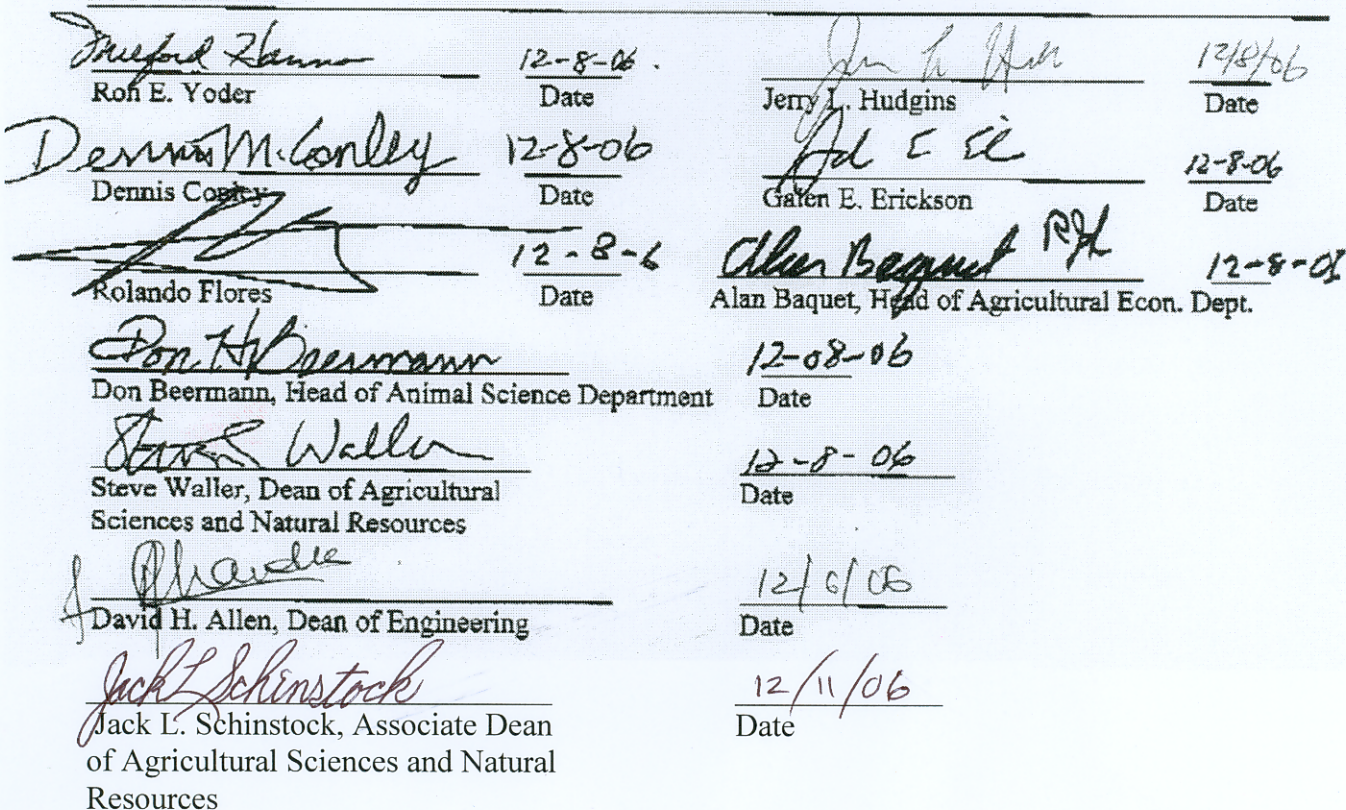 12-8-06 . 12/8/06
Ron E. Yoder Date Jerry L. Hudgins Date
Dennis M. Conley 12-8-06 12-8-06
Dennis Conley Date Galen E. Erickson Date
12-8-6 Alan Baquet 12-8-06
Rolando Flores Date Alan Baquet, Head of Agricultural Econ. Dept.
Don H. Beermann 12-08-06
Don Beermann, Head of Animal Science Department Date
Steven Waller 12-8-06
Steve Waller, Dean of Agricultural Date
Sciences and Natural Resources
12/6/06
David H. Allen, Dean of Engineering Date
Jack L Schinstock 12/11/06
Jack L. Schinstock, Associate Dean Date
of Agricultural Sciences and Natural
Resources